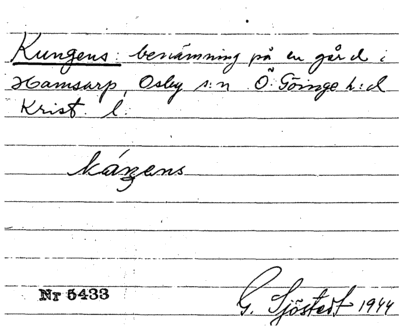 Kungens: benämning på en gård i
Hamsarp, Osby s:n Ö. Göinge h:d
Krist. l.
Nr 5433
G. Sjöstedt 1944